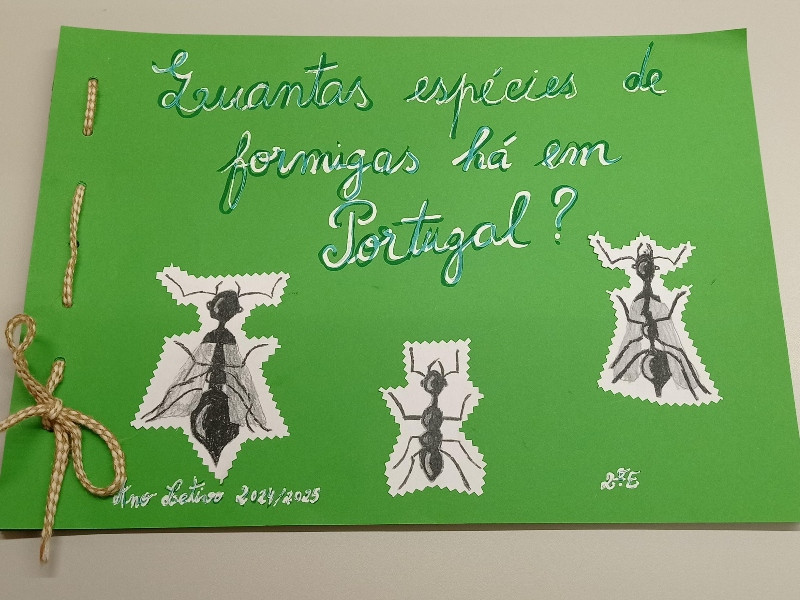 Quantas espécies de
formigas há em
Portugal?
Ano Letivo 2024/2025
2ºE